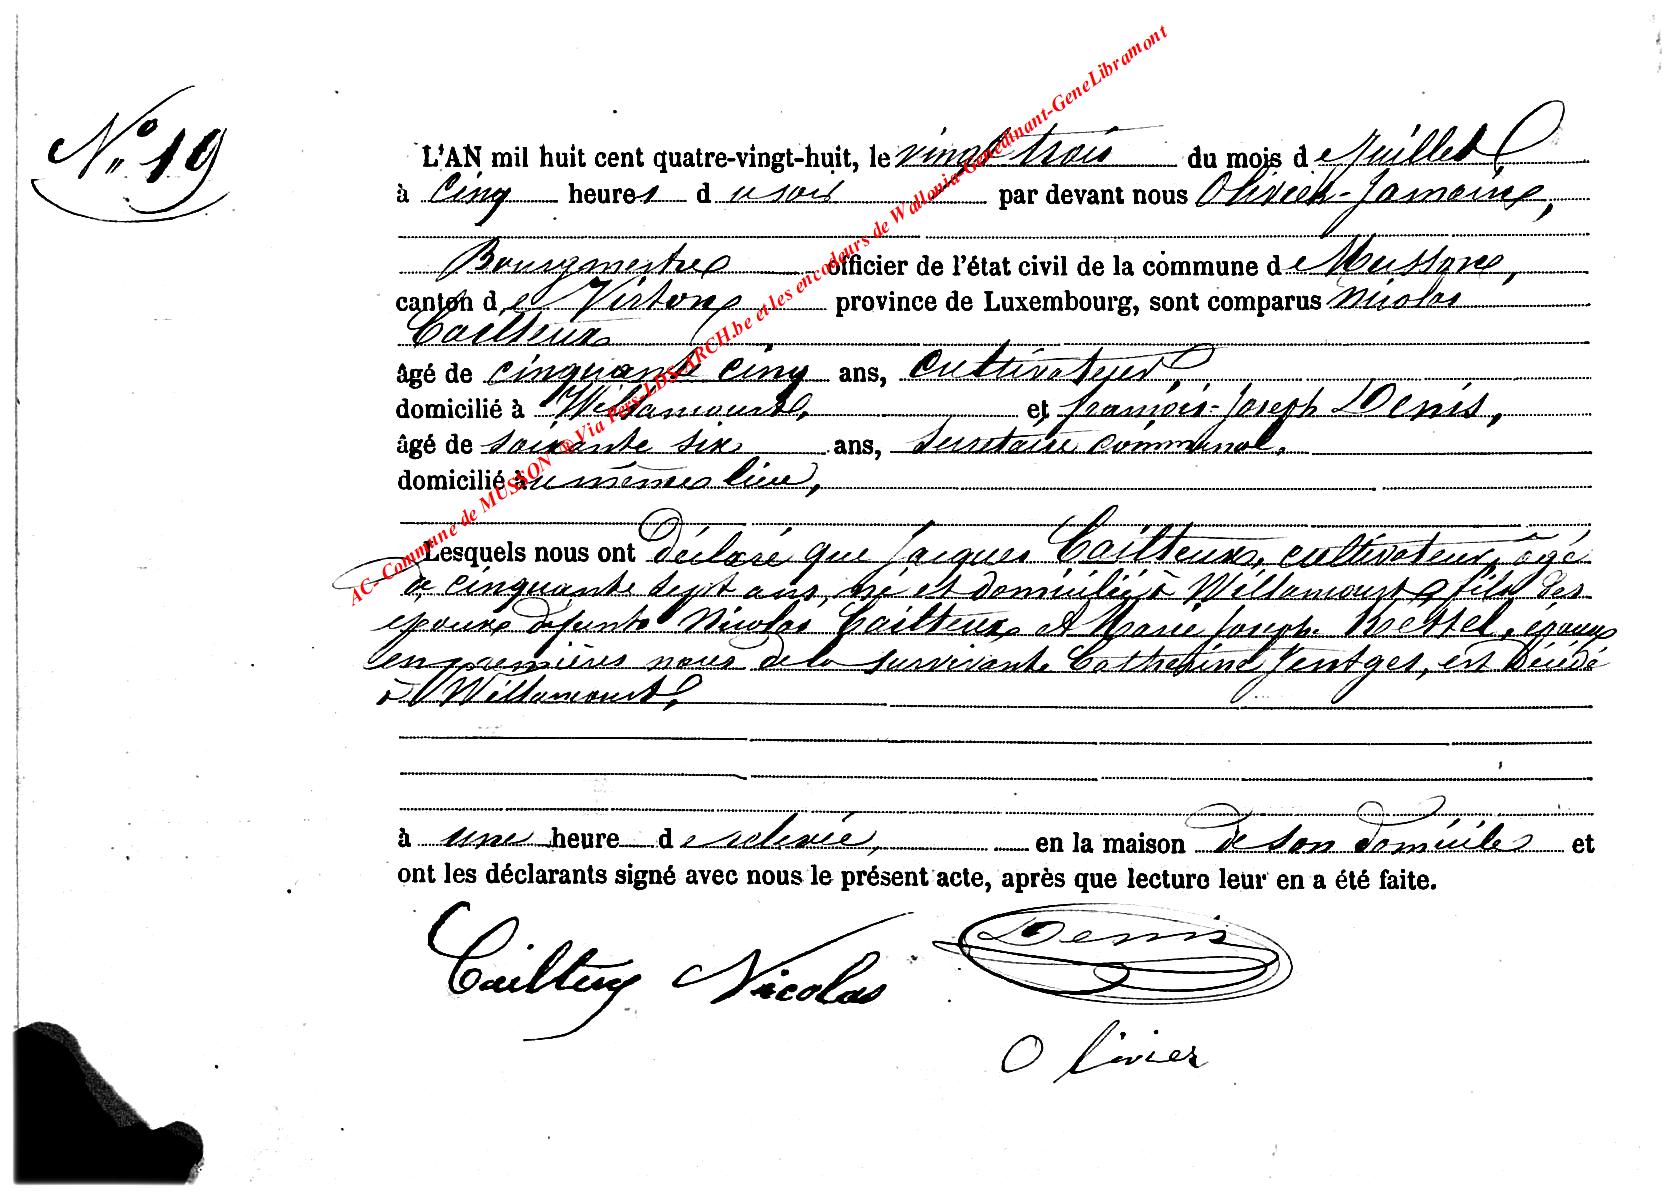 N° 19
L'AN mil huit cent quatre-vingt-huit, le vingt trois du mois de Juillet
à cinq heures du soir par devant nous Olivier-Jamoire,
Bourgmestre officier de l'état civil de la commune de Musson,
canton de Virton province de Luxembourg, sont comparus Nicolas
Cailteux
âgé de cinquante cinq ans, cultivateur
domicilié à Willancourt, et françois-Joseph Denis,
âgé de soixante six ans, secrétaire communal,
domicilié au même lieu,
Lesquels nous ont déclaré que Jacques Cailteux, cultivateur, âgé
de cinquante sept ans, né et domicilié à Willancourt, fils des
époux défunts Nicolas Cailteux et Marie Joseph Kettel, époux
en premières noces de la survivante Catherine Jentges, est décédé
à Willancourt,
à une heure de relevée, en la maison de son domicile et
ont les déclarants signé avec nous le présent acte, après que lecture leur en a été faite.
Cailteux Nicolas Denis
Olivier
AC- Commune de MUSSON ® Via Pers-LDS-ARCH.be et les encodeurs de Wallonia-Genedinant-GeneLibramont